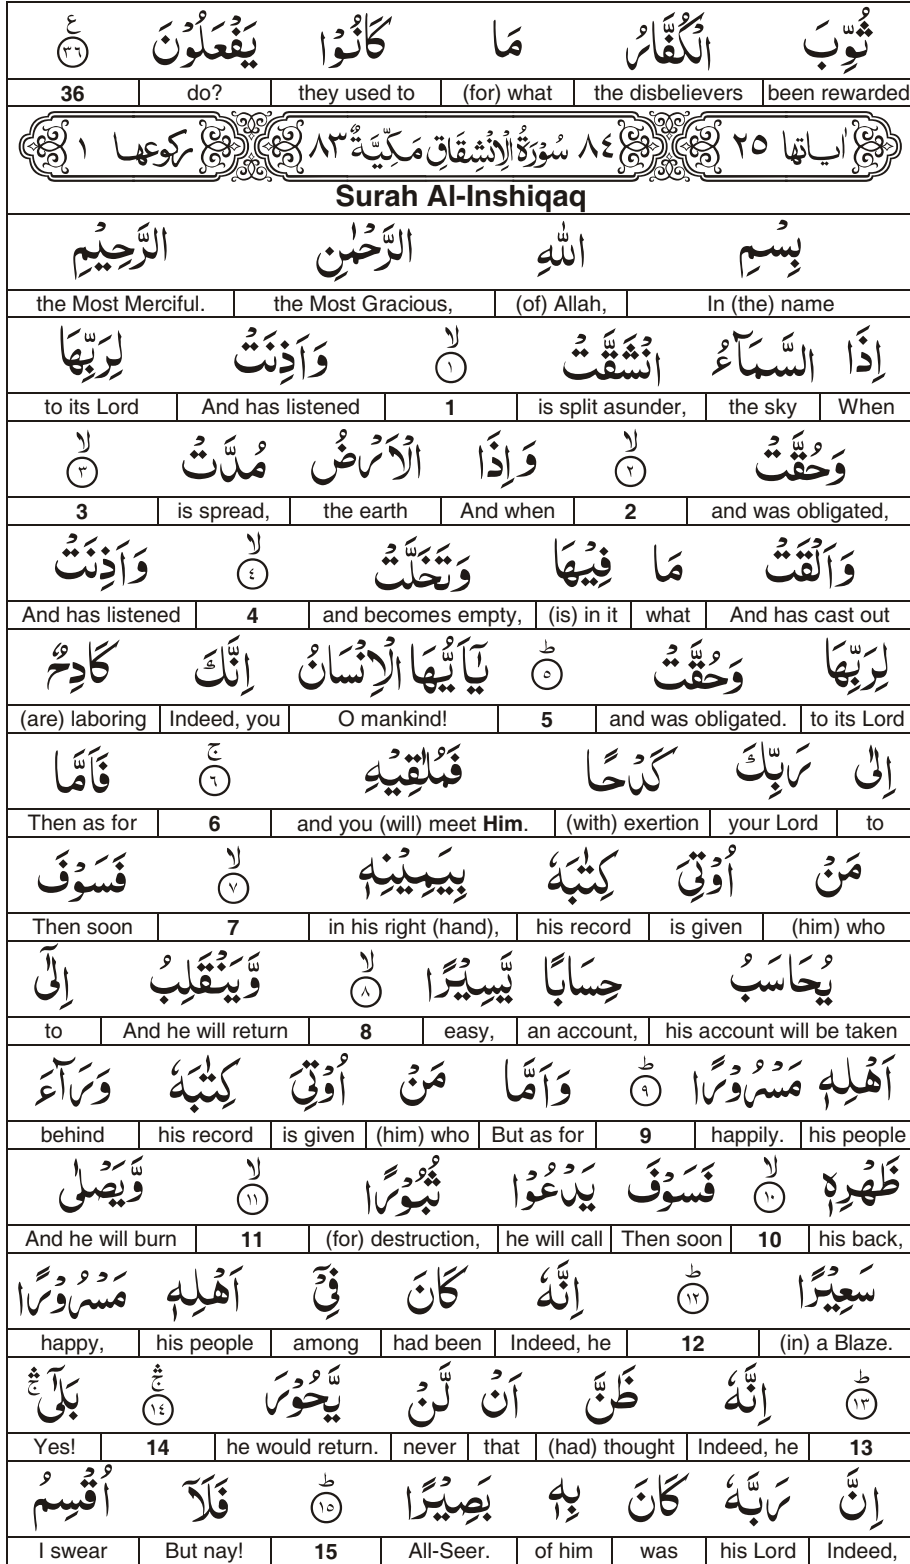 ثُوِّبَ الْكُفَّارُ مَا كَانُوْا يَفْعَلُوْنَ ﴿٣٦﴾ ع
been rewarded the disbelievers (for) what they used to do? 36
اٰياتها ٢٥ ٨٤ سُوْرَةُ الْاِنْشِقَاقِ مَكِّيَّةٌ ٨٣ ركوعها ١
Surah Al-Inshiqaq
بِسْمِ اللّٰهِ الرَّحْمٰنِ الرَّحِيْمِ
In (the) name (of) Allah, the Most Gracious, the Most Merciful.
اِذَا السَّمَآءُ انْشَقَّتْ ﴿١﴾ۙ وَاَذِنَتْ لِرَبِّهَا
When the sky is split asunder, 1 And has listened to its Lord
وَحُقَّتْ ﴿٢﴾ۙ وَاِذَا الْاَرْضُ مُدَّتْ ﴿٣﴾ۙ
and was obligated, 2 And when the earth is spread, 3
وَاَلْقَتْ مَا فِيْهَا وَتَخَلَّتْ ﴿٤﴾ۙ وَاَذِنَتْ
And has cast out what (is) in it and becomes empty, 4 And has listened
لِرَبِّهَا وَحُقَّتْ ﴿٥﴾ؕ يٰٓاَيُّهَا الْاِنْسَانُ اِنَّكَ كَادِحٌ
to its Lord and was obligated. 5 O mankind! Indeed, you (are) laboring
اِلٰى رَبِّكَ كَدْحًا فَمُلٰقِيْهِ ﴿٦﴾ۚ فَاَمَّا
to your Lord (with) exertion and you (will) meet Him. 6 Then as for
مَنْ اُوْتِيَ كِتٰبَهٗ بِيَمِيْنِهٖ ﴿٧﴾ۙ فَسَوْفَ
(him) who is given his record in his right (hand), 7 Then soon
يُحَاسَبُ حِسَابًا يَّسِيْرًا ﴿٨﴾ۙ وَّيَنْقَلِبُ اِلٰٓى
his account will be taken an account, easy, 8 And he will return to
اَهْلِهٖ مَسْرُوْرًا ﴿٩﴾ؕ وَاَمَّا مَنْ اُوْتِيَ كِتٰبَهٗ وَرَآءَ
his people happily. 9 But as for (him) who is given his record behind
ظَهْرِهٖ ﴿١٠﴾ۙ فَسَوْفَ يَدْعُوْا ثُبُوْرًا ﴿١١﴾ۙ وَّيَصْلٰى
his back, 10 Then soon he will call (for) destruction, 11 And he will burn
سَعِيْرًا ﴿١٢﴾ؕ اِنَّهٗ كَانَ فِيْٓ اَهْلِهٖ مَسْرُوْرًا
(in) a Blaze. 12 Indeed, he had been among his people happy,
﴿١٣﴾ؕ اِنَّهٗ ظَنَّ اَنْ لَّنْ يَّحُوْرَ ﴿١٤﴾ۚۛ بَلٰٓىۚۛ
13 Indeed, he (had) thought that never he would return. 14 Yes!
اِنَّ رَبَّهٗ كَانَ بِهٖ بَصِيْرًا ﴿١٥﴾ؕ فَلَآ اُقْسِمُ
Indeed, his Lord was of him All-Seer. 15 But nay! I swear